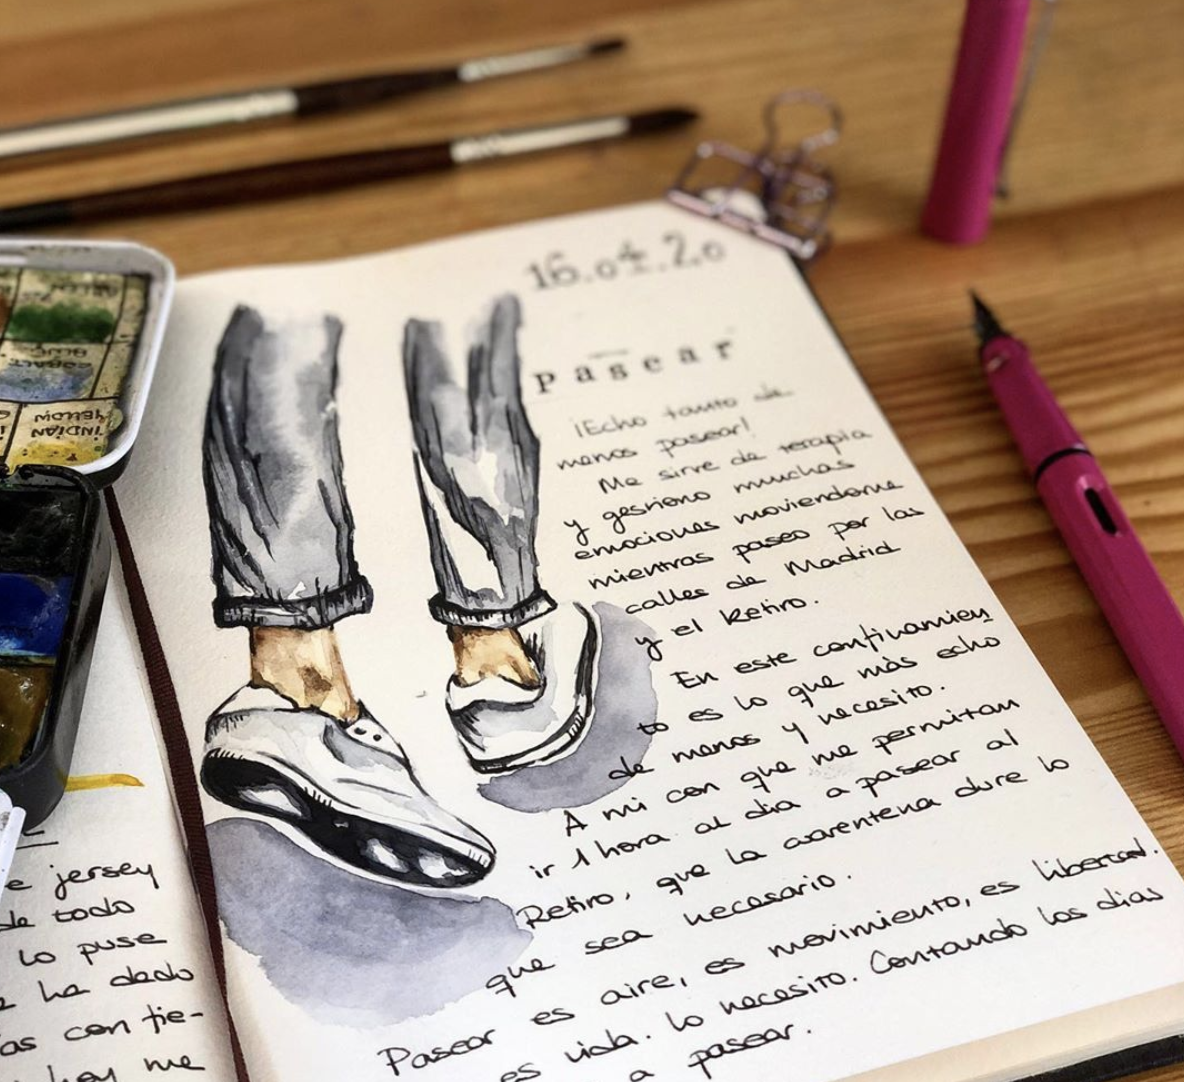 16.04.20
pasear
¡Echo tanto de
menos pasear!
Me sirve de terapia
y gestiono muchas
emociones moviendome
mientras paseo por las
calles de Madrid
y el Retiro.
En este confinamien
to es lo que más echo
de menos y necesito.
A mi con que me permitan
ir 1 hora al dia a pasear al
Retiro, que la cuarentena dure lo
que sea necesario.
Pasear es aire, es movimiento, es libertad.
es vida. Lo necesito. Contando los dias
a pasear.
e jersey
de todo
lo puse
ha dado
as con tie-
hoy me
COBALT
BLUE
INDIAN
YELLOW